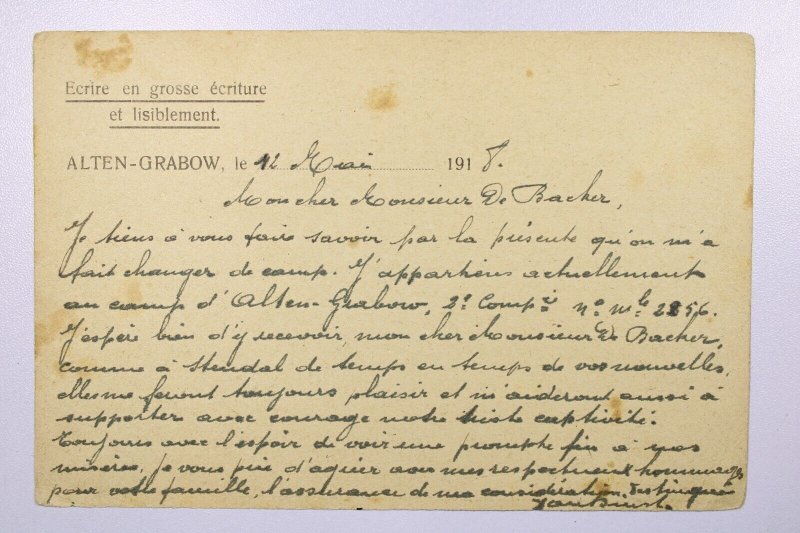 Ecrire en grosse écriture
et lisiblement.
ALTEN-GRABOW, le 12 Mai 1918.
Mon cher Monsieur De Backer,
Je tiens à vous faire savoir par la présente qu'on m'a
fait changer de camp. J'appartiens actuellement
au camp d'Alten-Grabow, 2e Compie no mle 2856.
J'espère bien d'y recevoir, mon cher Monsieur De Backer,
comme à Stendal de temps en temps de vos nouvelles,
elles me feront toujours plaisir et m'aideront aussi à
supporter avec courage notre triste captivité.
Toujours avec l'espoir de voir une prompte fin à nos
misères, je vous prie d'agréer avec mes respectueux hommages
pour votre famille, l'assurance de ma considération distinguée